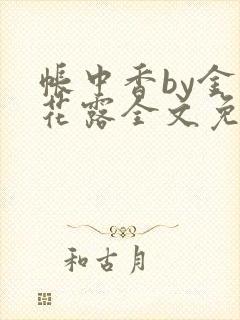 帳中香by金
花露全文免
和古月